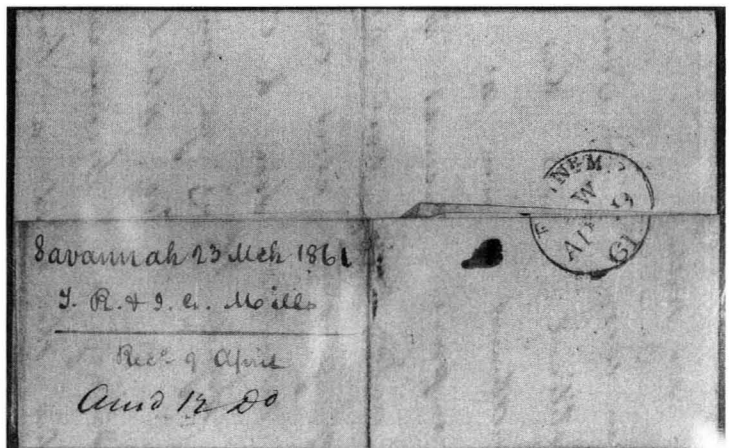 Savannah 23 Mch 1861
T. R. & J. G. Mills
Recd 9 April
Ansd 12 Do
NE M
W
AP 9
61